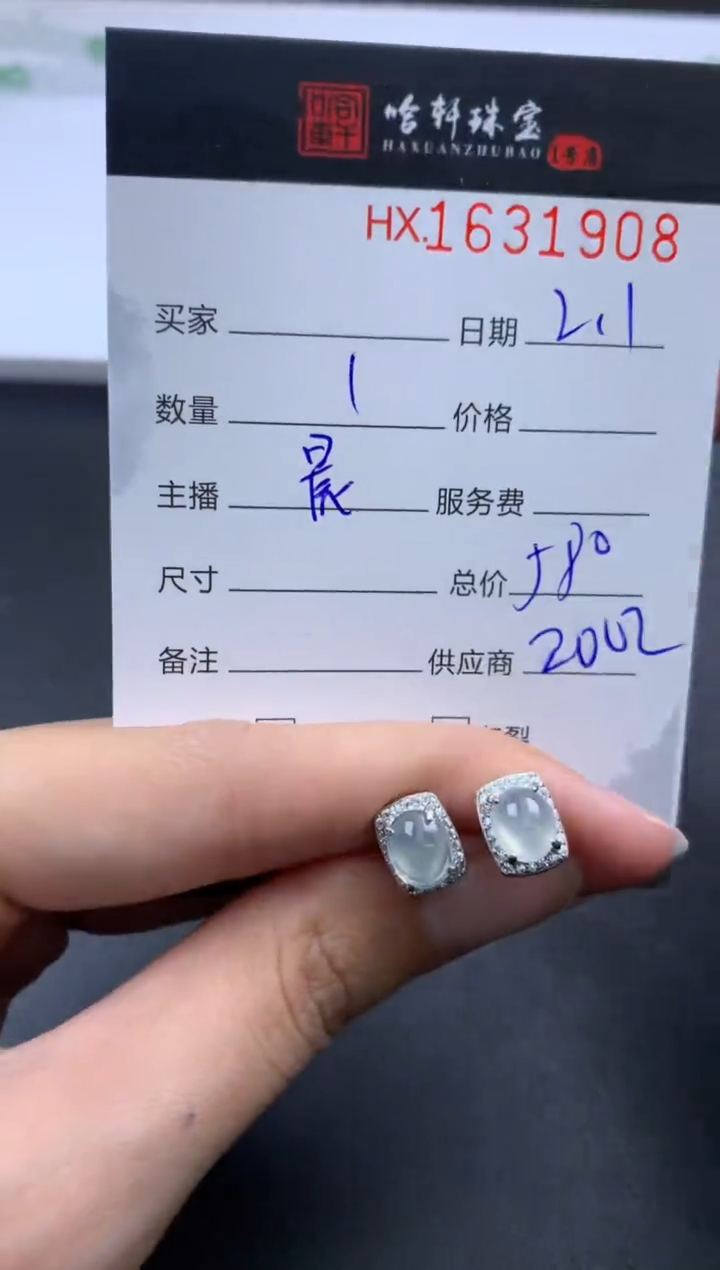 哈轩珠宝
HAXUANZHUBAO 1号店
HX.1631908
买家 日期 2.1
数量 1 价格
主播 晨 服务费
尺寸 总价 580
备注 供应商 2002
裂